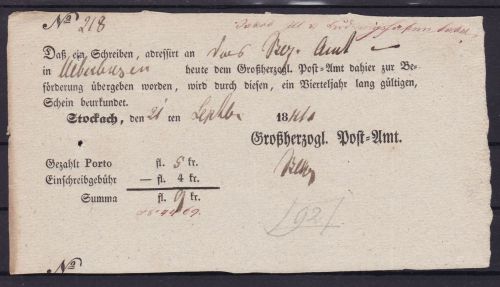 Nº 218
Daß ein Schreiben, addressirt an das Bez. Amt
in Ueberlingen heute dem Großherzogl. Post-Amt dahier zur Be-
förderung übergeben worden, wird durch diesen, ein Vierteljahr lang gültigen,
Schein beurkundet.
Stockach, den 21 ten Septbr 18
Großherzogl. Post-Amt.
Gezahlt Porto fl. 5 kr.
Einschreibgebühr — fl. 4 kr.
Summa fl. 9 kr.
[92]
Nº